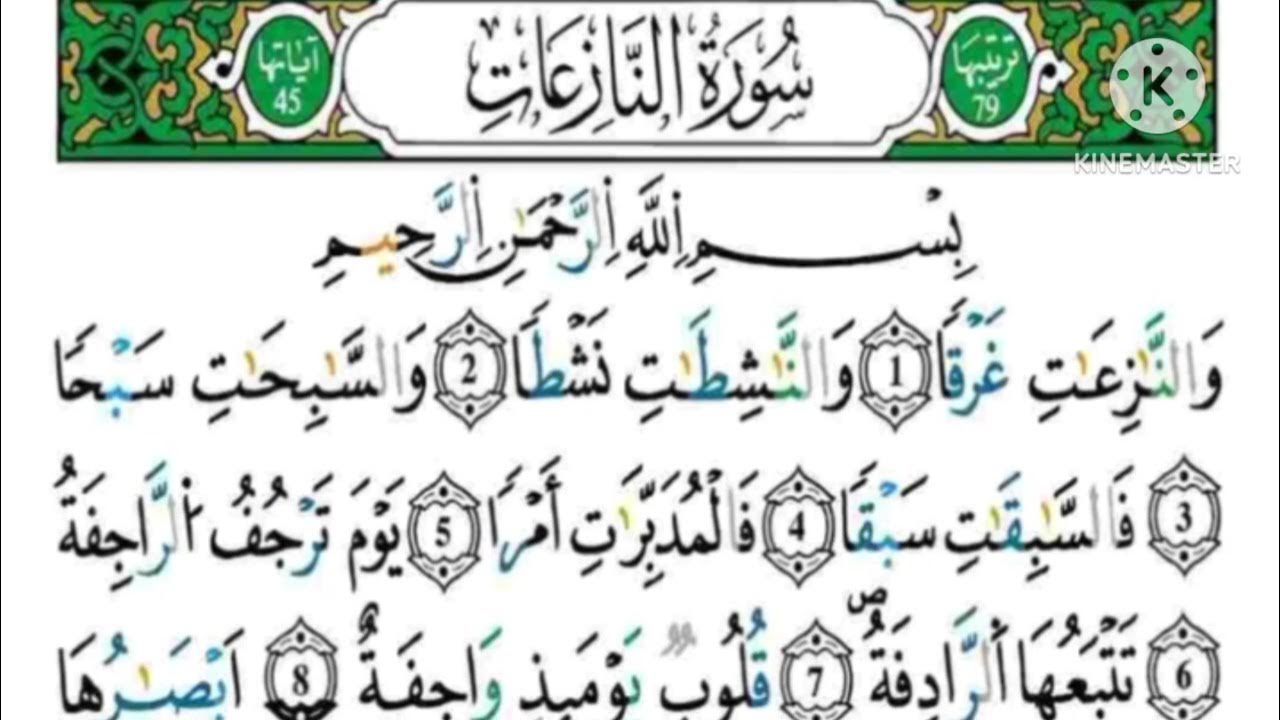 ترتيبها
79
سُورَةُ النَّازِعَاتِ
آياتها
45
KINEMASTER
بِسْمِ اِللَّهِ اِلرَّحْمَٰنِ اِلرَّحِيمِ
وَالنَّٰزِعَٰتِ غَرْقاً 1 وَالنَّٰشِطَٰتِ نَشْطاً 2 وَالسَّٰبِحَٰتِ سَبْحاً
3 فَالسَّٰبِقَٰتِ سَبْقاً 4 فَالْمُدَبِّرَٰتِ أَمْراً 5 يَوْمَ تَرْجُفُ اُلرَّاجِفَةُ
6 تَتْبَعُهَا اَلرَّادِفَةُ ۖ 7 قُلُوبٌ يَوْمَئِذٍ وَاجِفَةٌ 8 اَبْصَٰرُهَا